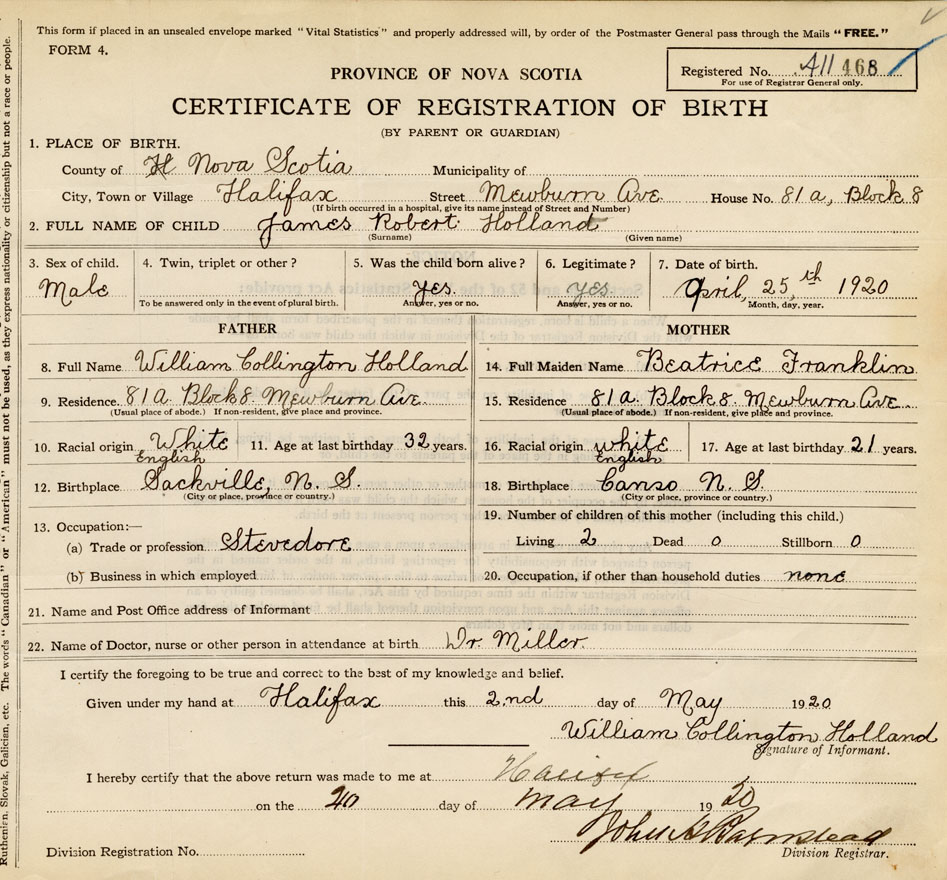 This form if placed in an unsealed envelope marked "Vital Statistics" and properly addressed will, by order of the Postmaster General pass through the Mails "FREE."
FORM 4.
Registered No. A11 468
For use of Registrar General only.
PROVINCE OF NOVA SCOTIA
CERTIFICATE OF REGISTRATION OF BIRTH
(BY PARENT OR GUARDIAN)
1. PLACE OF BIRTH.
County of H Nova Scotia Municipality of
City, Town or Village Halifax Street Mewburn Ave. House No. 81a, Block 8
(If birth occurred in a hospital, give its name instead of Street and Number)
2. FULL NAME OF CHILD James Robert Holland
(Surname) (Given name)
3. Sex of child. 4. Twin, triplet or other? 5. Was the child born alive? 6. Legitimate? 7. Date of birth.
Male yes yes April, 25,th 1920
To be answered only in the event of plural birth. Answer, yes or no. Answer, yes or no. Month, day, year.
FATHER MOTHER
8. Full Name William Collington Holland 14. Full Maiden Name Beatrice Franklin
9. Residence. 81a Block 8. Mewburn Ave. 15. Residence 81a Block 8 Mewburn Ave.
(Usual place of abode.) If non-resident, give place and province. (Usual place of abode.) If non-resident, give place and province.
10. Racial origin White 11. Age at last birthday 32 years. 16. Racial origin white 17. Age at last birthday 21 years.
English English
12. Birthplace Sackville, N. S. 18. Birthplace Canso N. S
(City or place, province or country.) (City or place, province or country.)
13. Occupation:— 19. Number of children of this mother (including this child.)
(a) Trade or profession Stevedore Living 2 Dead 0 Stillborn 0
(b) Business in which employed 20. Occupation, if other than household duties none
21. Name and Post Office address of Informant
22. Name of Doctor, nurse or other person in attendance at birth Dr. Miller.
I certify the foregoing to be true and correct to the best of my knowledge and belief.
Given under my hand at Halifax this 2.nd day of May 1920
William Collington Holland
Signature of Informant.
I hereby certify that the above return was made to me at
on the day of May 19 20
John
Division Registrar.
Division Registration No.
Ruthenien, Slovak, Galician, etc. The words "Canadian" or "American" must not be used, as they express nationality or citizenship but not a race or people.